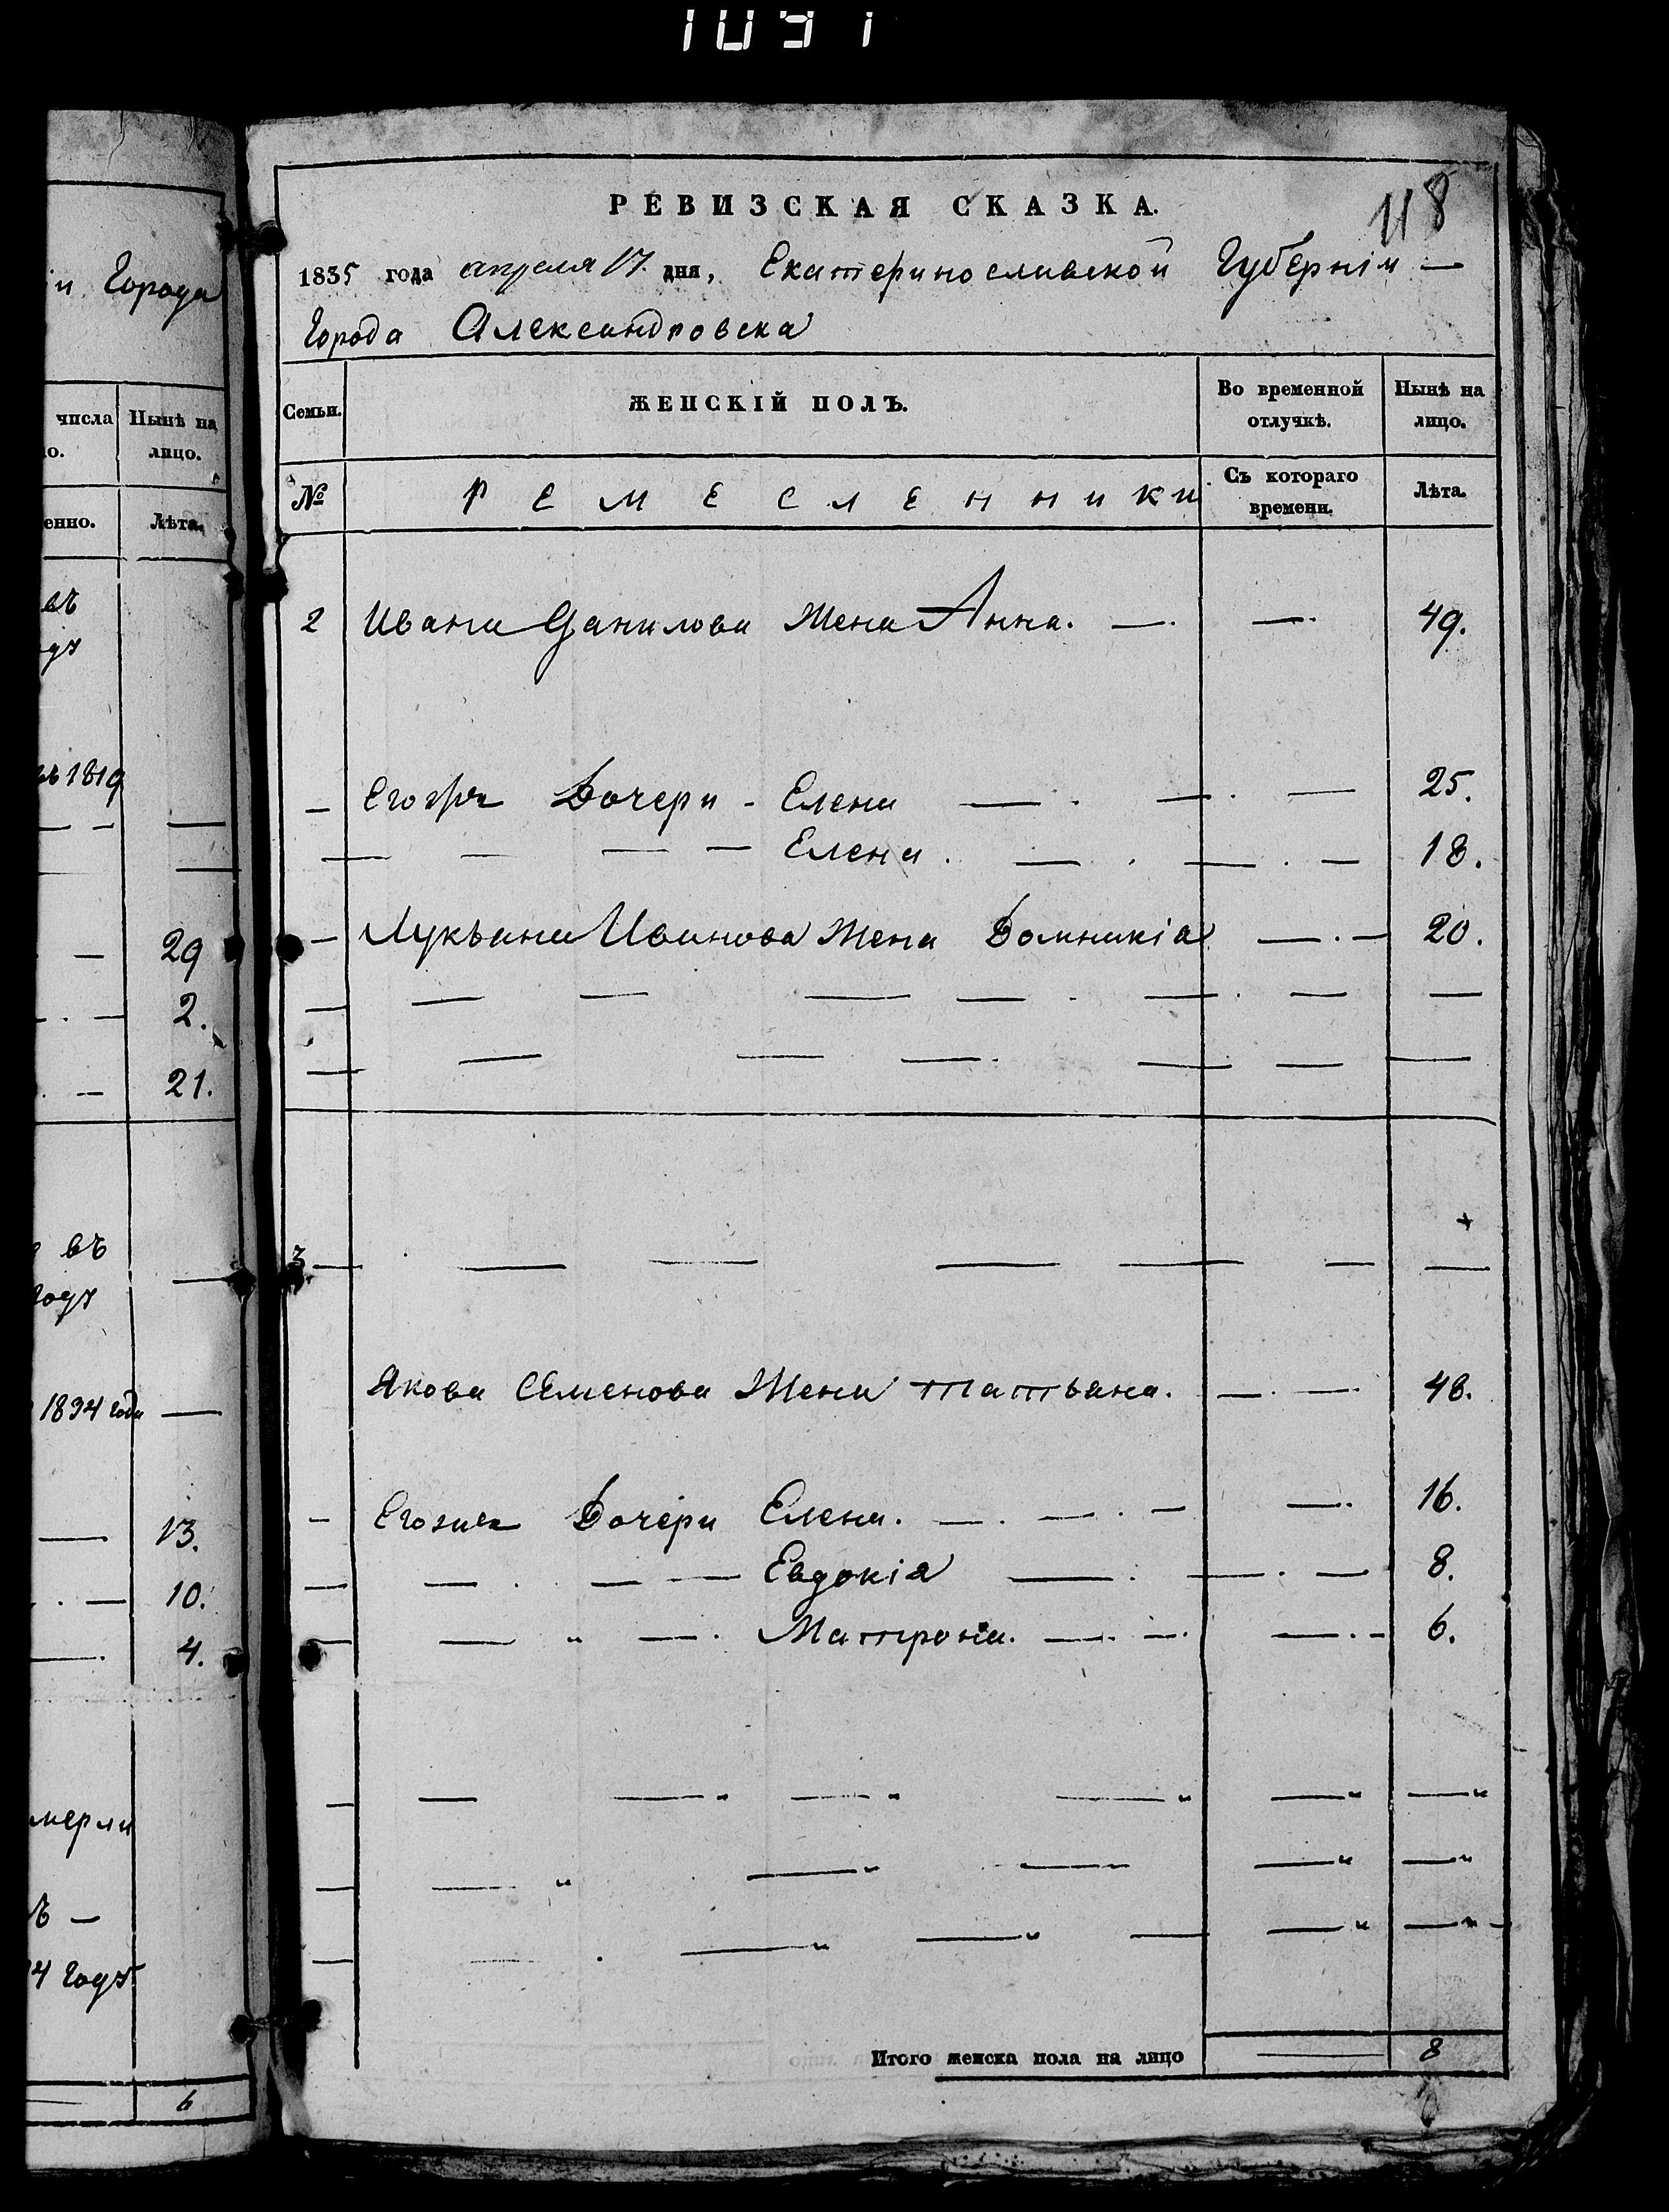 1091
и Города
числа Нынѣ на
о. лицо.
енно. Лѣта.
въ
1819
29
2.
21.
въ
году
1834 года
13.
10.
4.
мерли
4 году
6
118
РЕВИЗСКАЯ СКАЗКА.
1835 года апреля 17. дня, Екатеринославской Губерніи —
Города Александровска
Семьи. ЖЕНСКІЙ ПОЛЪ. Во временной отлучкѣ. Нынѣ на лицо.
№ Ремесленники Съ котораго времени. Лѣта.
2 Ивана Данилова Жена Анна. — — 49.
— Дочери - Елена — — — 25.
— — — — Елена. — — — 18.
— Лукьяна Иванова Жена Домникіа — — 20.
— — — — — — — —
— — — — — — —
3 — — — — — — —
Якова Семенова Жена Татьяна. — — 48.
— Дочери Елена. — — — — 16.
— — — — Евдокіа — — — 8.
— — " — Матрона. — — — — 6.
— — — " — " — " — " — "
— — " — " — — " — "
— — — " — " — — " — "
Итого женска пола на лицо — 8